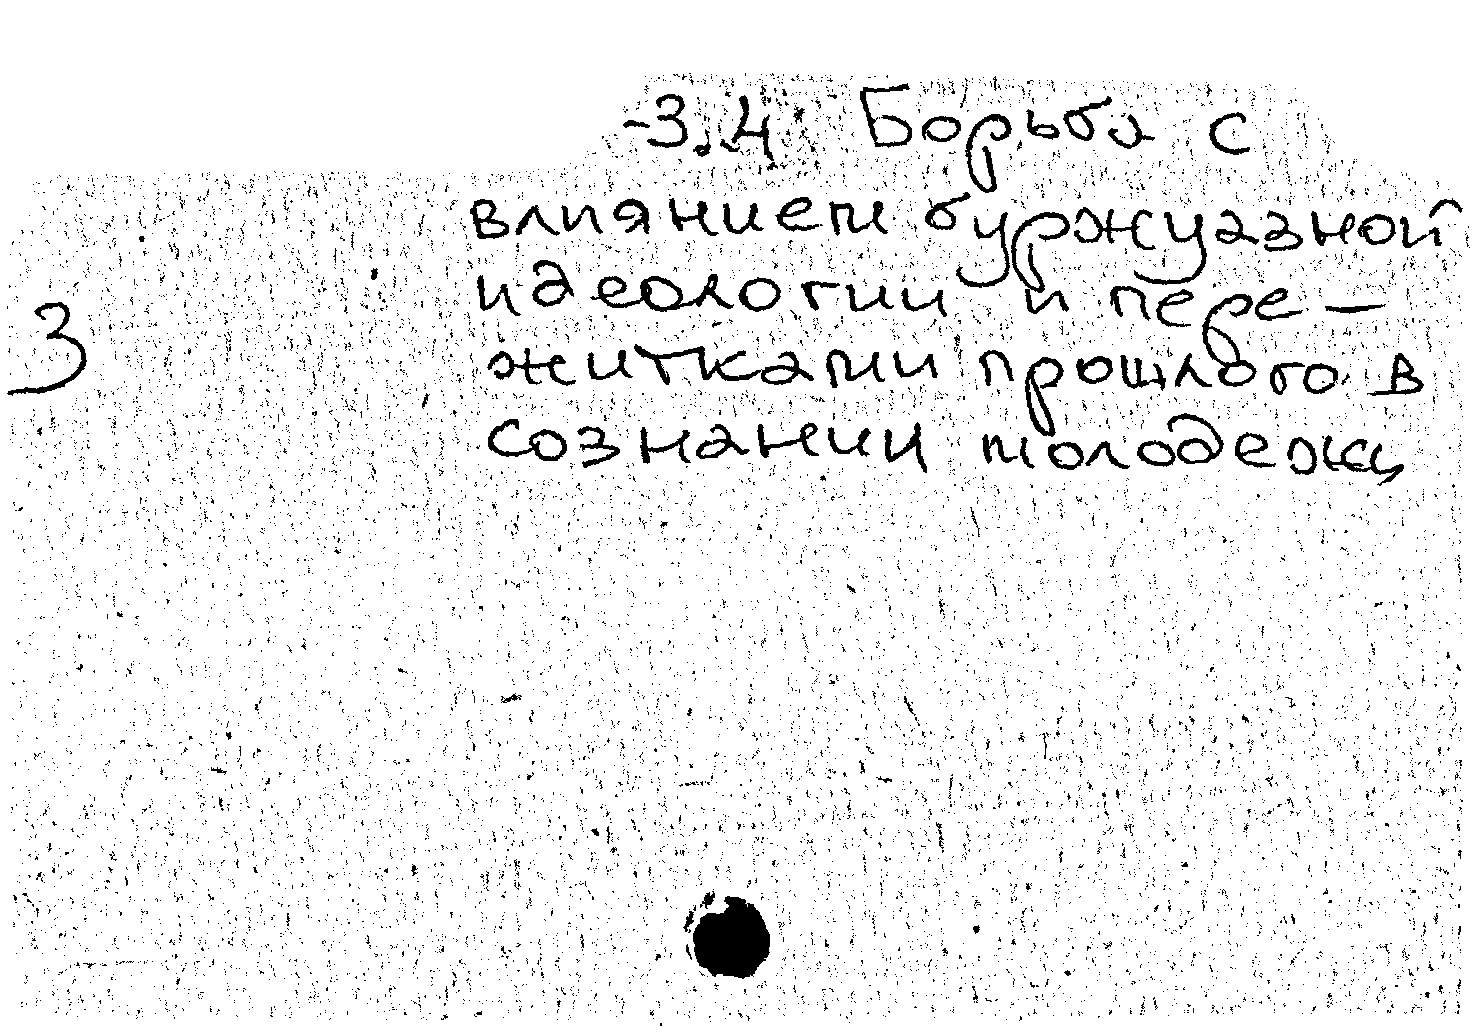 -3.4. Борьба с
влиянием буржуазной
идеологии и пере-
3
житками прошлого в
сознании молодежи